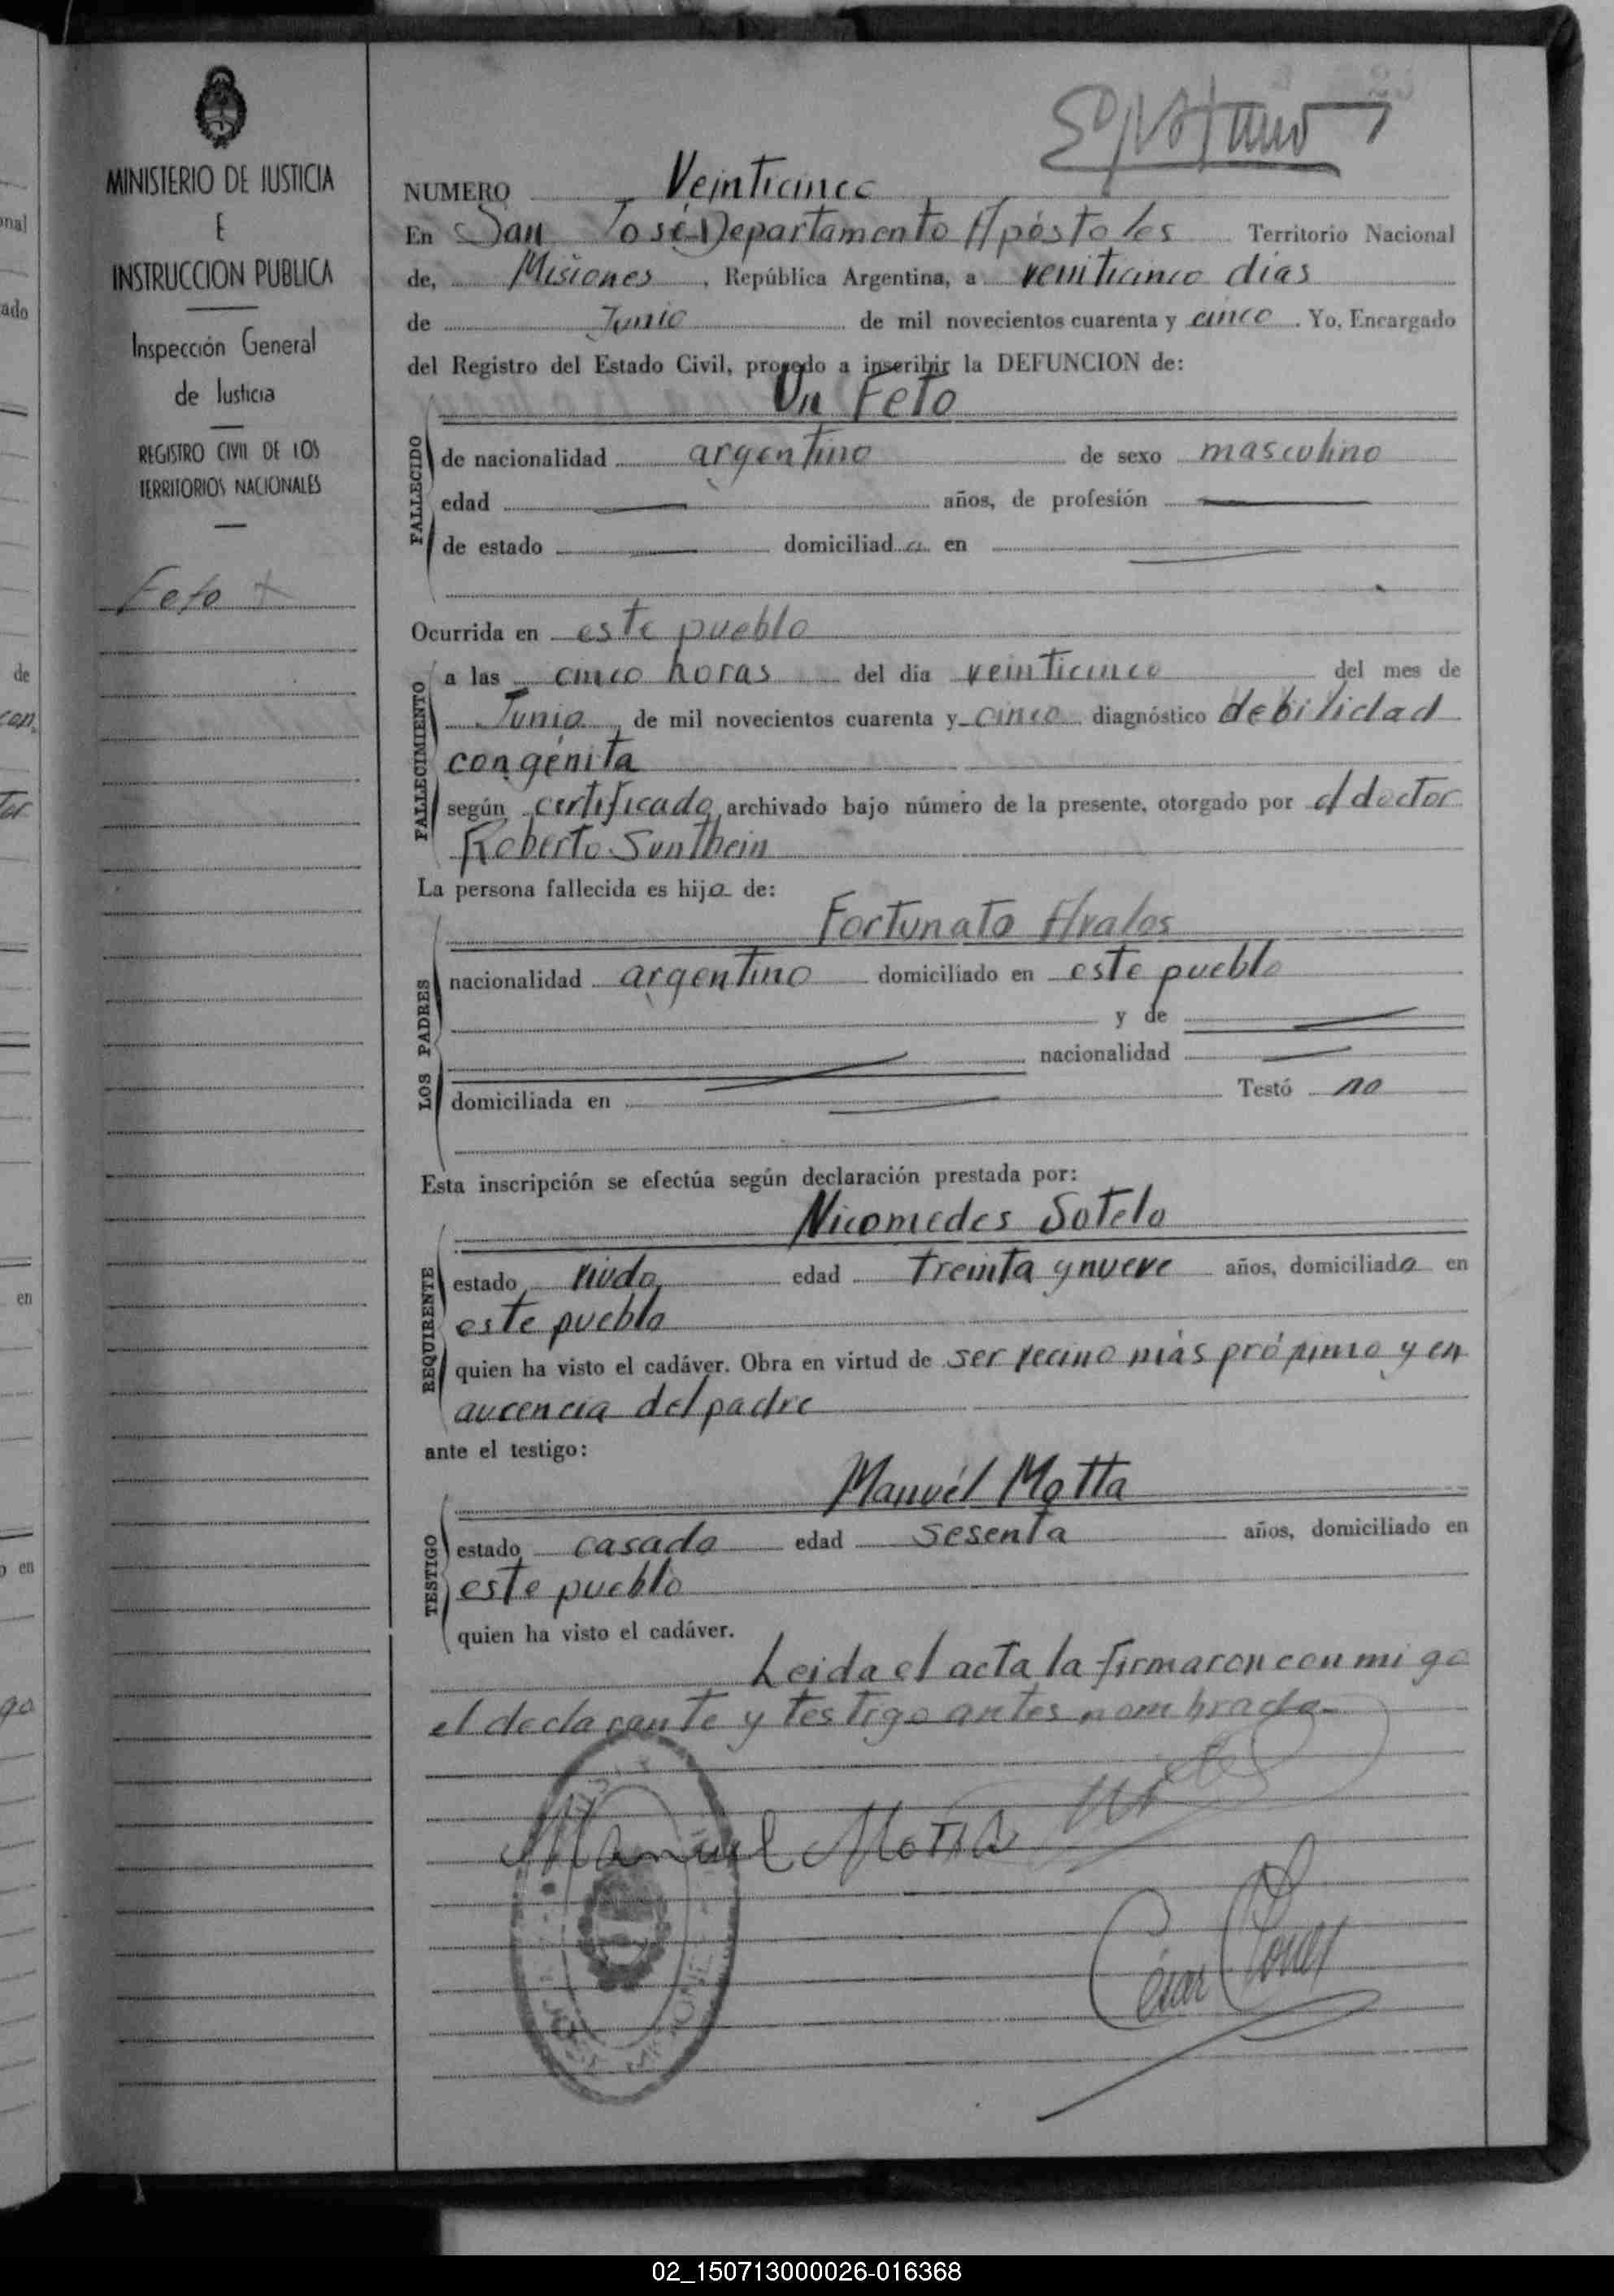 MINISTERIO DE JUSTICIA
E
INSTRUCCION PUBLICA
Inspección General
de Justicia
REGISTRO CIVIL DE LOS
TERRITORIOS NACIONALES
Feto
NUMERO Veinticinco
En San José-Departamento Apóstoles Territorio Nacional
de, Misiones, República Argentina, a veinticinco dias
de Junio de mil novecientos cuarenta y cinco. Yo, Encargado
del Registro del Estado Civil, procedo a inscribir la DEFUNCION de:
Un Feto
FALLECIDO
de nacionalidad argentino de sexo masculino
edad — años, de profesión —
de estado — domiciliado en —
Ocurrida en este pueblo
FALLECIMIENTO
a las cinco horas del día veinticinco del mes de
Junio, de mil novecientos cuarenta y cinco diagnóstico debilidad
congénita
según certificado, archivado bajo número de la presente, otorgado por el doctor
Roberto Sunthein
La persona fallecida es hijo de:
LOS PADRES
Fortunato Avalos
nacionalidad argentino domiciliado en este pueblo
y de —
— nacionalidad —
domiciliada en — Testó no
Esta inscripción se efectúa según declaración prestada por:
REQUIRENTE
Nicomedes Sotelo
estado viudo, edad treinta y nueve años, domiciliado en
este pueblo
quien ha visto el cadáver. Obra en virtud de ser vecino más próximo y en
aucencia del padre
ante el testigo:
TESTIGO
Manuél Motta
estado casado edad sesenta años, domiciliado en
este pueblo
quien ha visto el cadáver.
Leida el acta la firmaron con migo
el declarante y testigo antes nombrado-
Manuel Motta
César
02_150713000026-016368